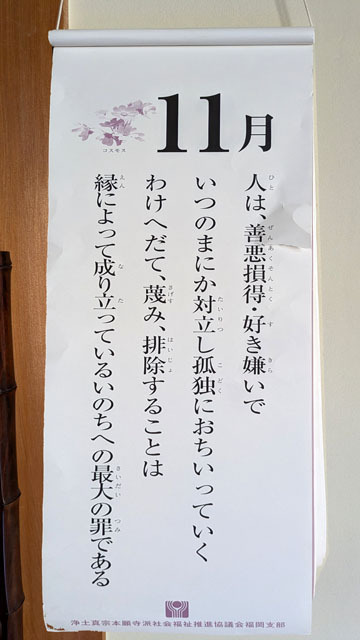 11月
コスモス
人は、善悪損得・好き嫌いで
いつのまにか対立し孤独におちいっていく
わけへだて、蔑み、排除することは
縁によって成り立っているいのちへの最大の罪である
浄土真宗本願寺派社会福祉推進協議会福岡支部